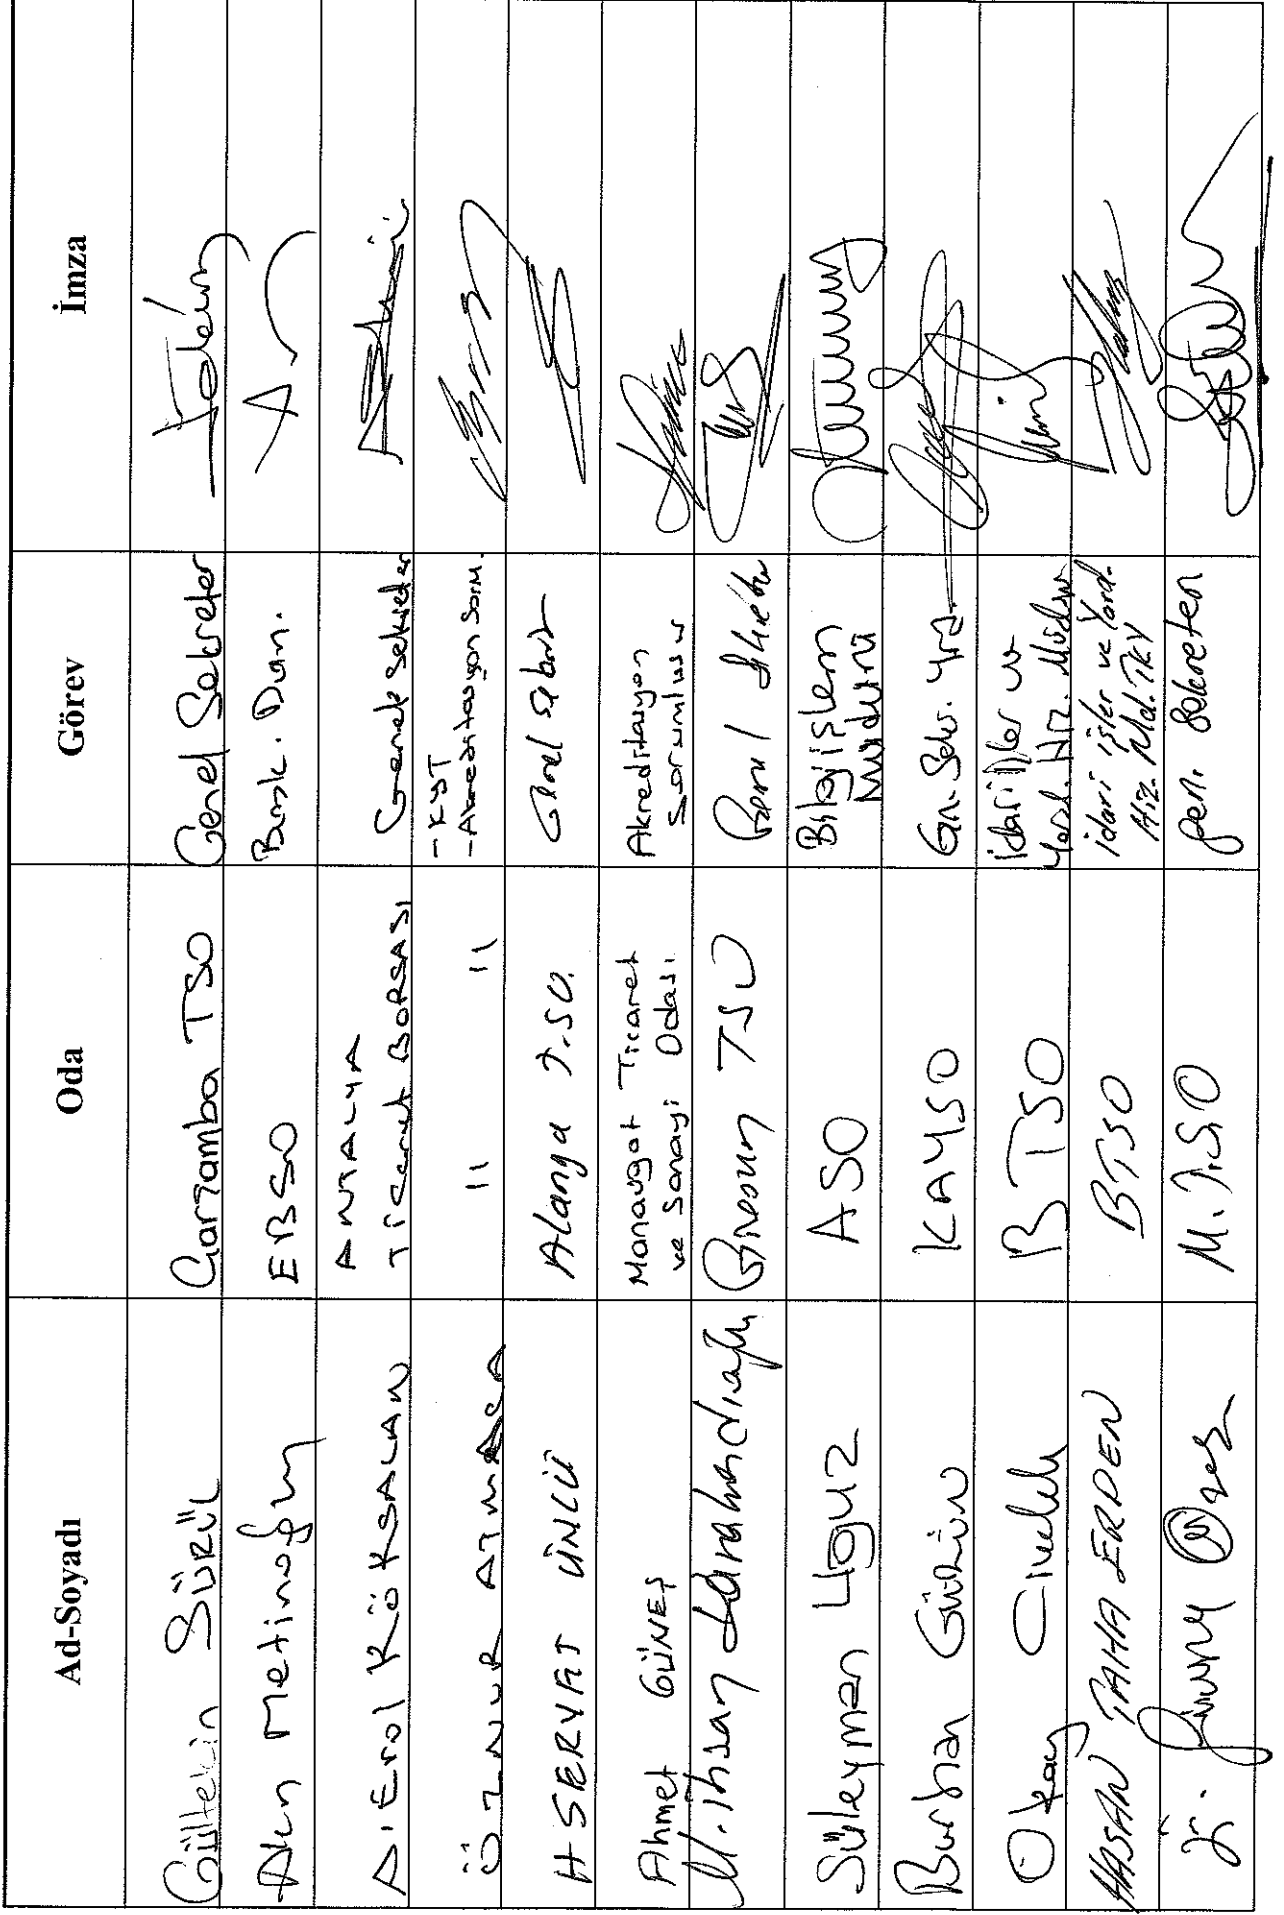 Ad-Soyadı Oda Görev İmza
Gültekin SÜRÜL Çarşamba TSO Genel Sekreter
Metinoğlu EBSO Dan.
A. Erol KÖKSALAN ANTALYA Ticaret BORSASI Genel Sekreter
ÖZNUR ATMACA " " - KYT
- Akreditasyon Sorm.
H SERVET ÜNCÜ Alanya T.S.O. Genel Sekreter
Ahmet GÜNEŞ Manavgat Ticaret
ve Sanayi Odası Akreditasyon
Sorumlusu
M. İhsan Giresun TSO Genel Sekreter
Süleyman ASO Bilgi işlem
Müdürü
Burhan KAYSO Gn. Sekr. Yrd.
Okay BTSO İdari İşler ve
Yard. Hiz. Müdür
HASAN TAHA ERDEN BTSO İdari işler ve Yard.
Hiz. Md. TKY
M.T.S.O Gen. Sekreteri